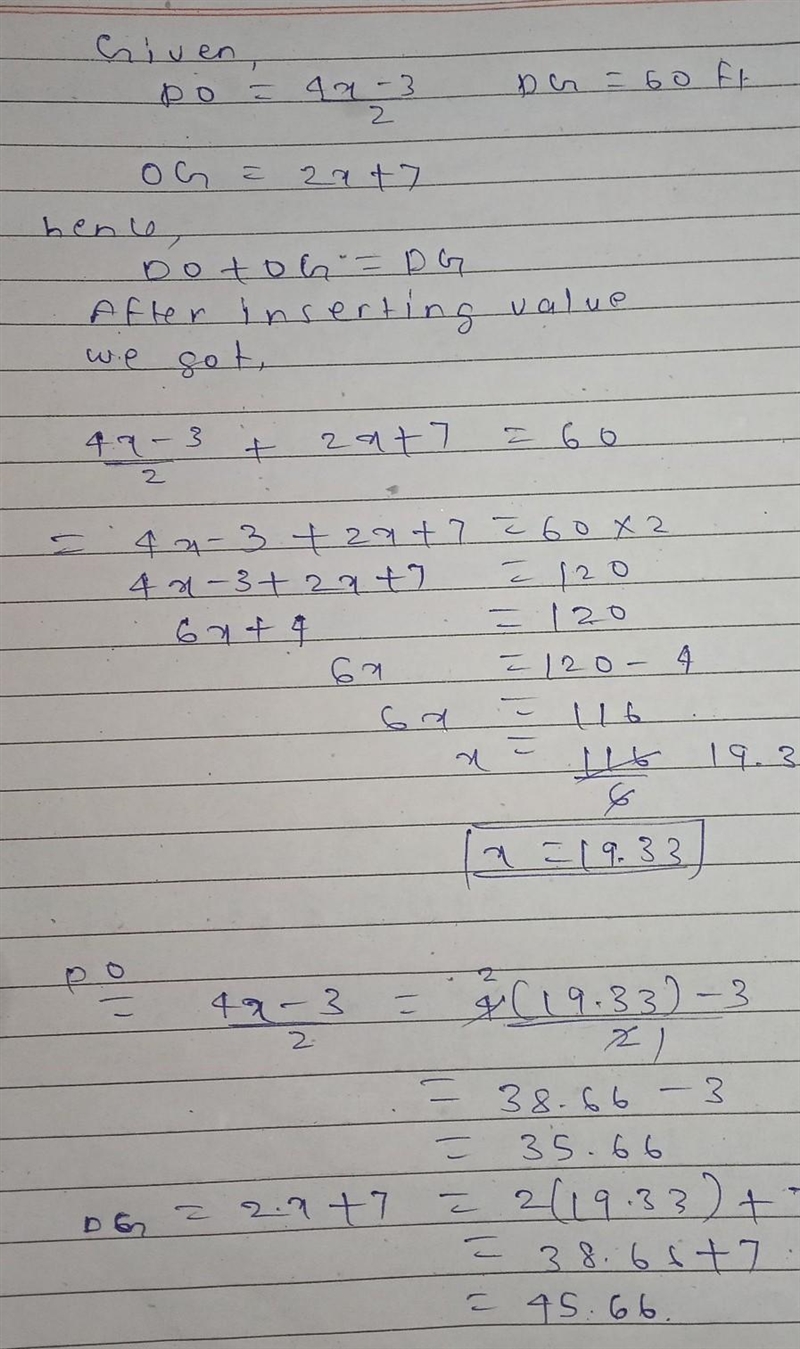 Given,
DO = 4x-3/2 DG = 60 Ft
OG = 2x+7
hence,
DO + OG = DG
After inserting value
we got,
4x-3/2 + 2x+7 = 60
= 4x-3+2x+7 = 60×2
4x-3+2x+7 = 120
6x+4 = 120
6x = 120-4
6x = 116
x = 116/6 19.3
x = 19.33
DO = 4x-3/2 = 4 2(19.33)-3/2 1
= 38.66-3
= 35.66
DG = 2.x+7 = 2(19.33)+
= 38.66+7
= 45.66.